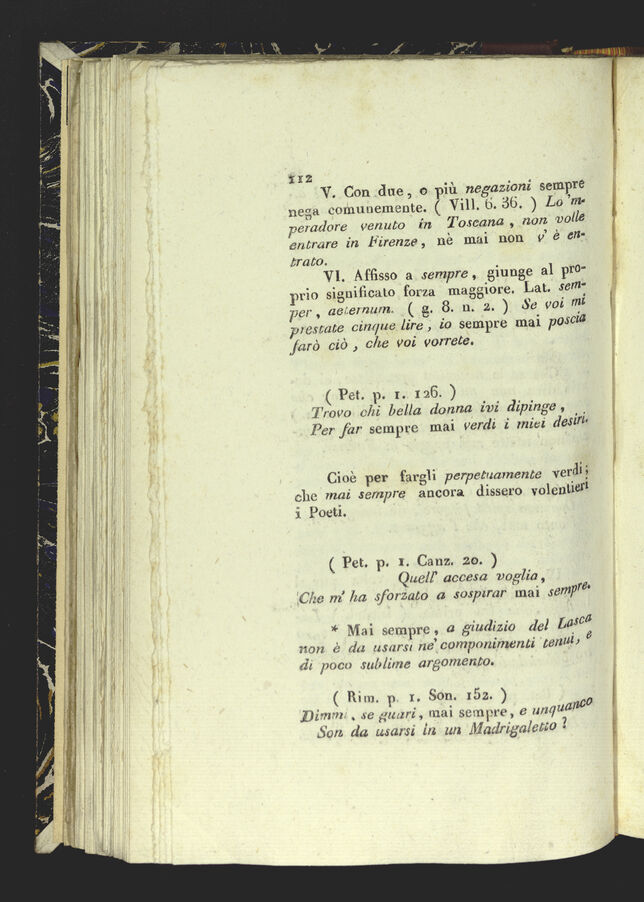 112
V. Con due, o più negazioni sempre
nega comunemente. ( Vill. 6. 36. ) Lo 'm-
peradore venuto in Toscana, non volle
entrare in Firenze, nè mai non v' è en-
trato.
VI. Affisso a sempre, giunge al pro-
prio significato forza maggiore. Lat. sem-
per, aeternum. ( g. 8. n. 2. ) Se voi mi
prestate cinque lire, io sempre mai poscia
farò ciò, che voi vorrete.
( Pet. p. 1. 126. )
Trovo chi bella donna ivi dipinge,
Per far sempre mai verdi i miei desiri.
Cioè per fargli perpetuamente verdi;
che mai sempre ancora dissero volentieri
i Poeti.
( Pet. p. 1. Canz. 20. )
Quell' accesa voglia,
Che m' ha sforzato a sospirar mai sempre.
* Mai sempre, a giudizio del Lasca
non è da usarsi ne' componimenti tenui, e
di poco sublime argomento.
( Rim. p. 1. Son. 152. )
Dimmi, se guari, mai sempre, e unquanco
Son da usarsi in un Madrigaletto ?